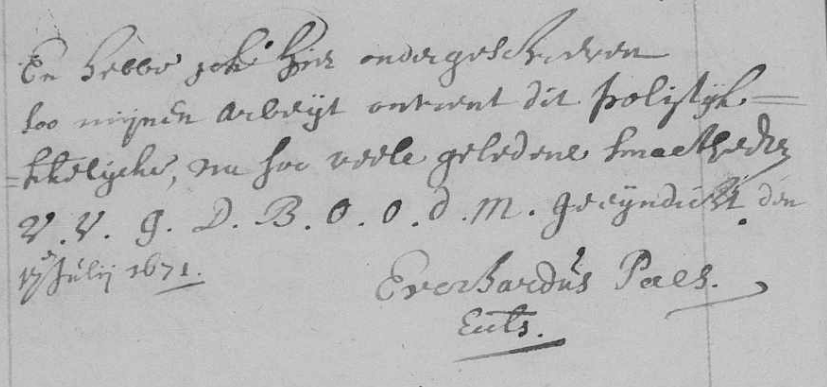 En hebbe ick hier ondergeschreven
soo mijnen arbeijt ontrent dit polistyk=
=kkelycke, na soo veele geledene smaetheden
V. V. G. D. B. O. O. d. M. geeyndicht den
17 Julij 1671.
Everhardus Paes.